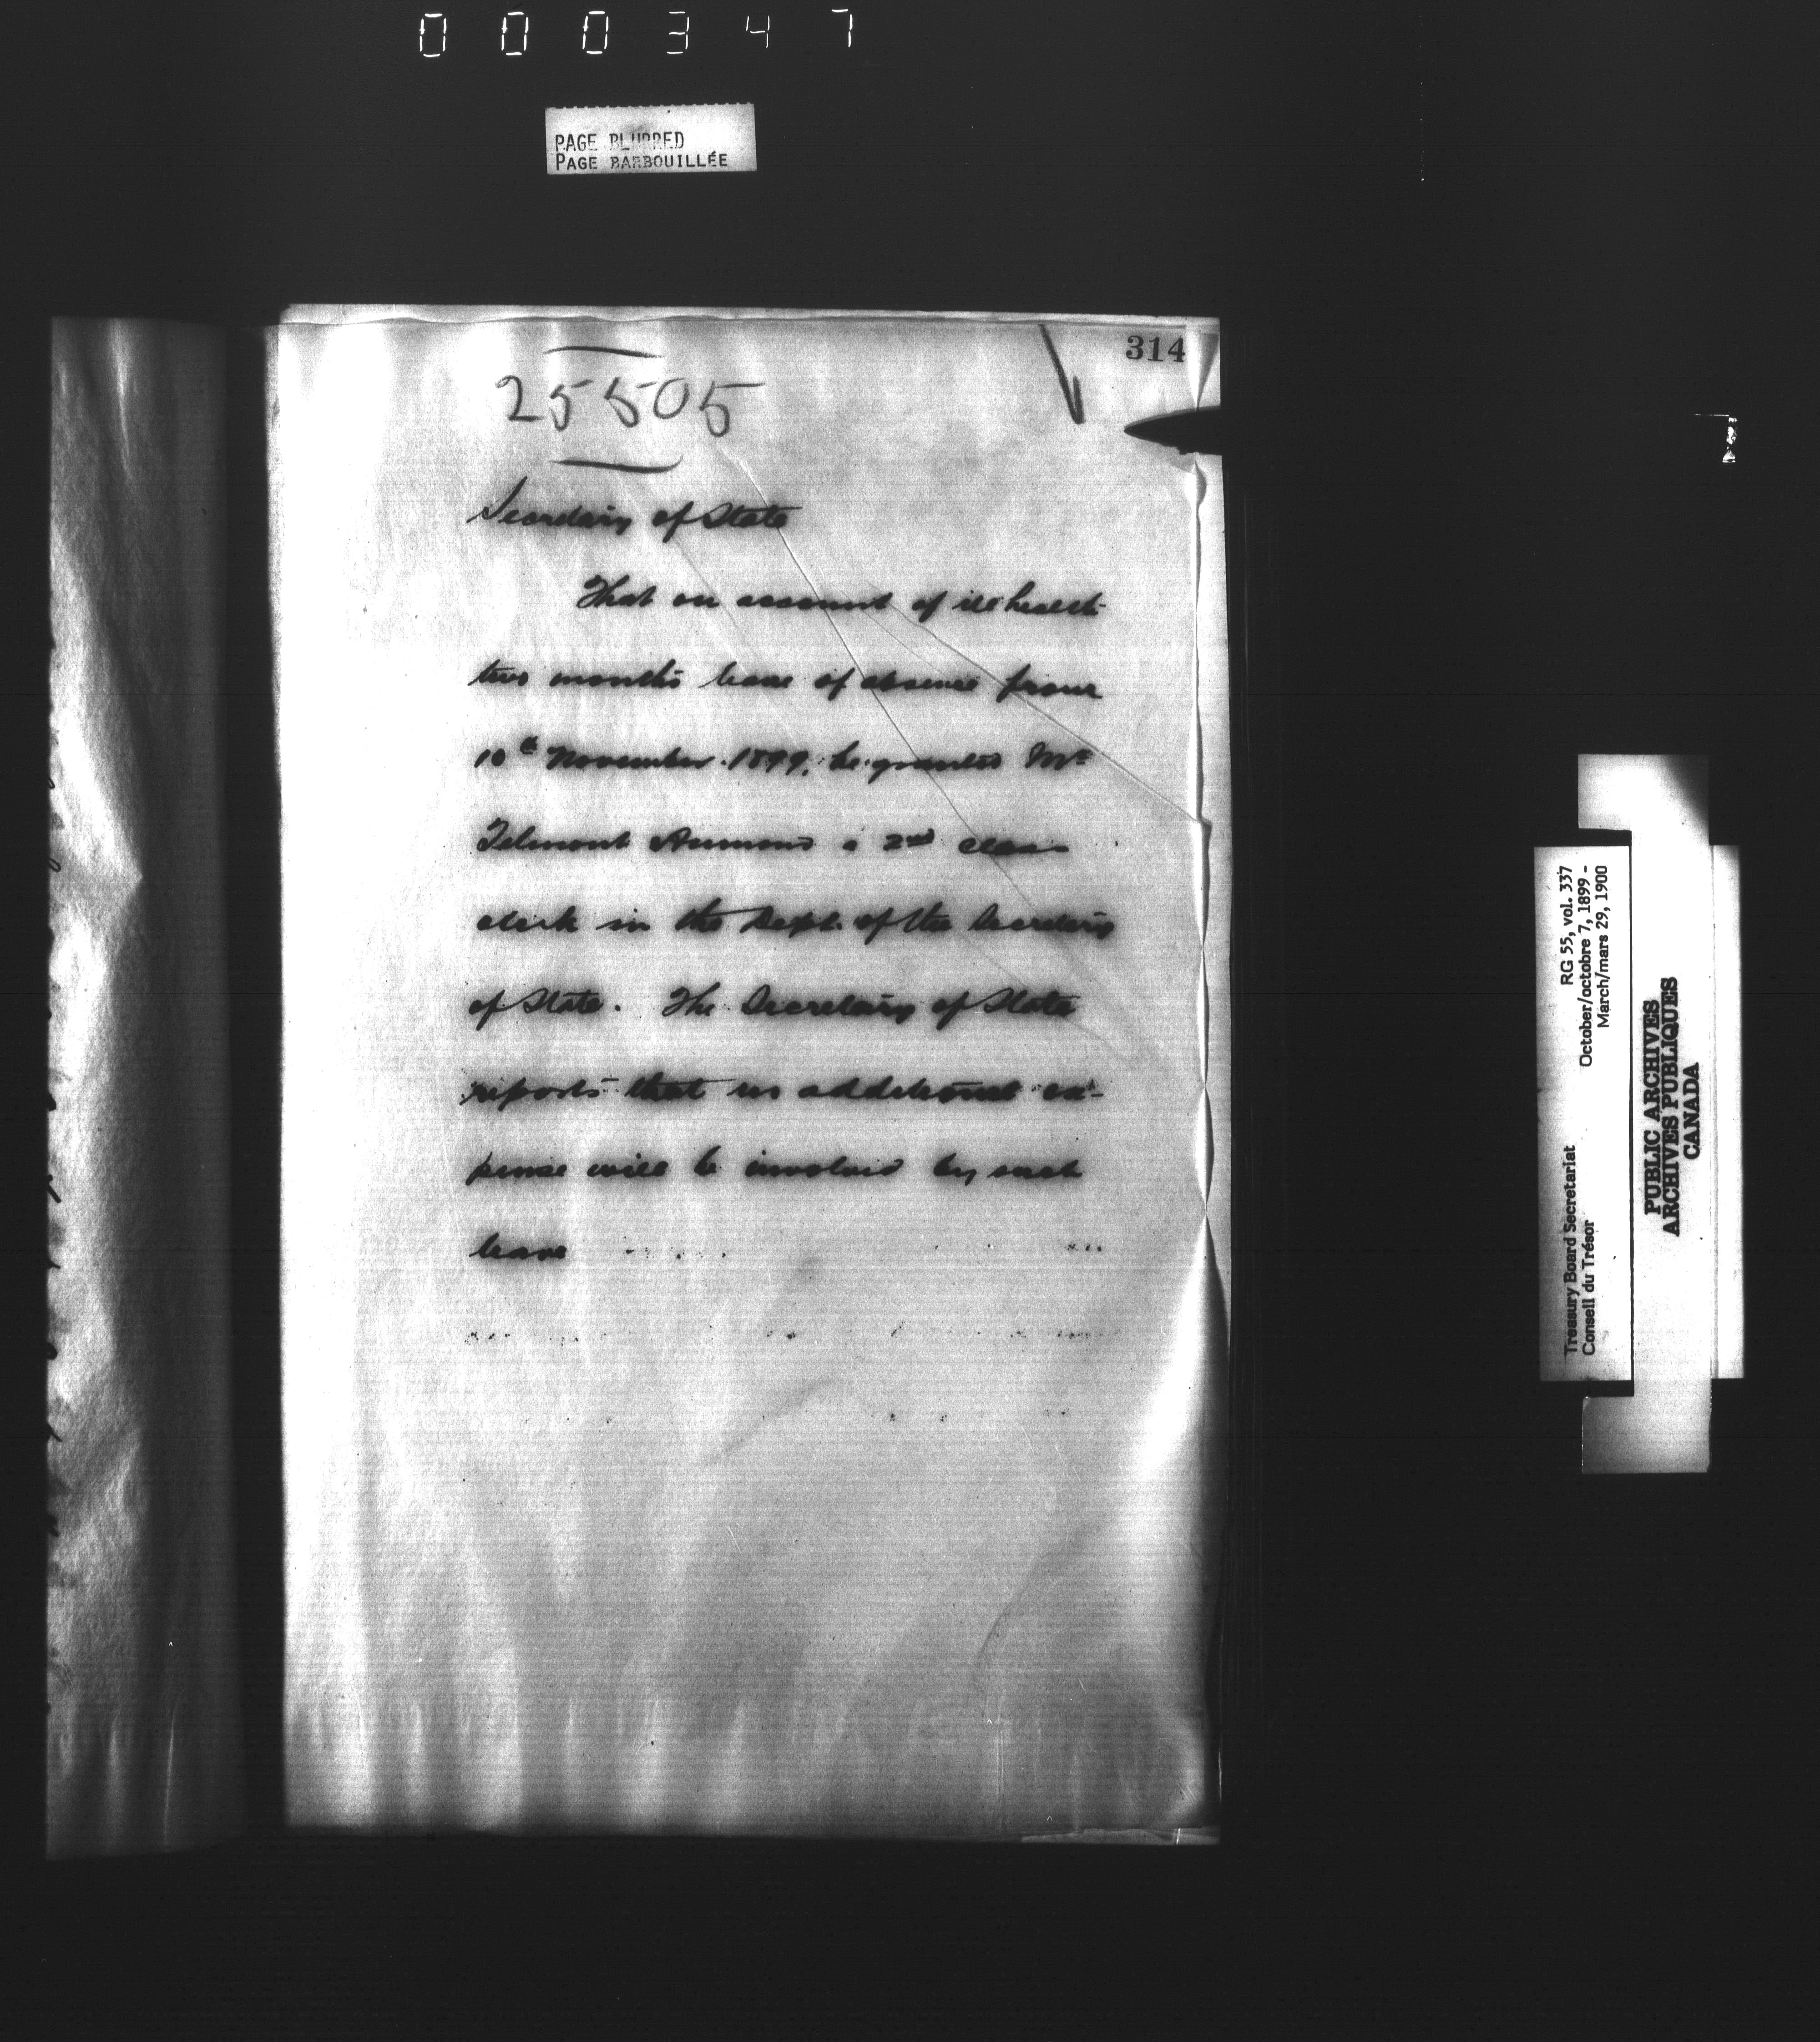 000347
PAGE BLURRED
PAGE BARBOUILLÉE
314
25505
Secretary of State
That on account of ill health
two months leave of absence from
10th November 1899, be granted Mr
Telmont Aumond a 2nd class
clerk in the Dept. of the Secretary
of State. The Secretary of State
reports that no additional ex-
pense will be involved by such
leave
Treasury Board Secretariat RG 55, vol. 337
Conseil du Trésor October/octobre 7, 1899 -
March/mars 29, 1900
PUBLIC ARCHIVES
ARCHIVES PUBLIQUES
CANADA